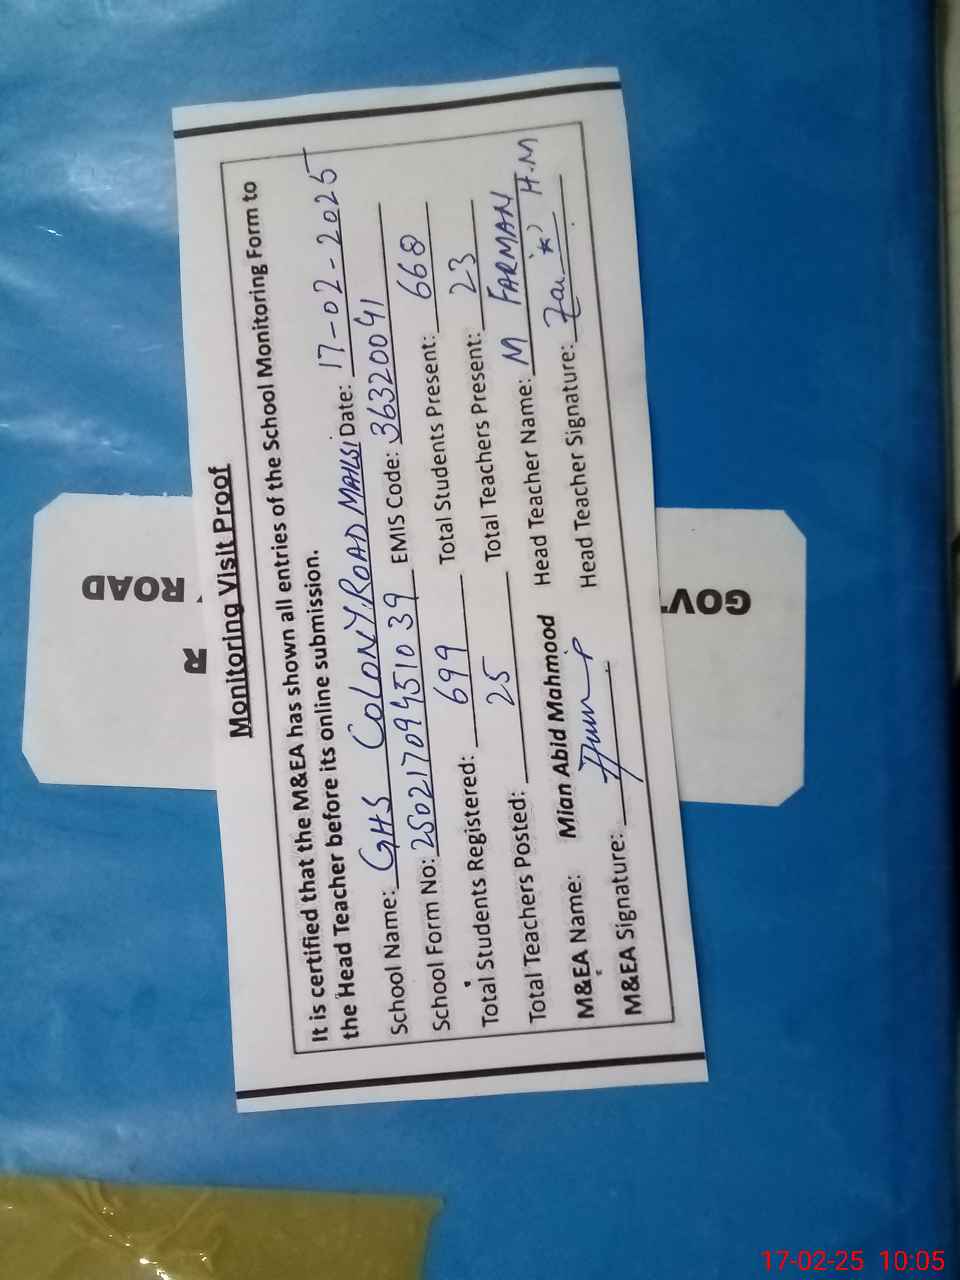 Monitoring Visit Proof
It is certified that the M&EA has shown all entries of the School Monitoring Form to
the Head Teacher before its online submission.
School Name: GHS COLONY ROAD MAILSI Date: 17-02-2025
School Form No: EMIS Code: 36320041
Total Students Registered: 699 Total Students Present: 668
Total Teachers Posted: 25 Total Teachers Present: 23
M&EA Name: Mian Abid Mahmood Head Teacher Name: M FARMAN H.M
M&EA Signature: Head Teacher Signature:
GOVT
R
ROAD
17-02-25 10:05